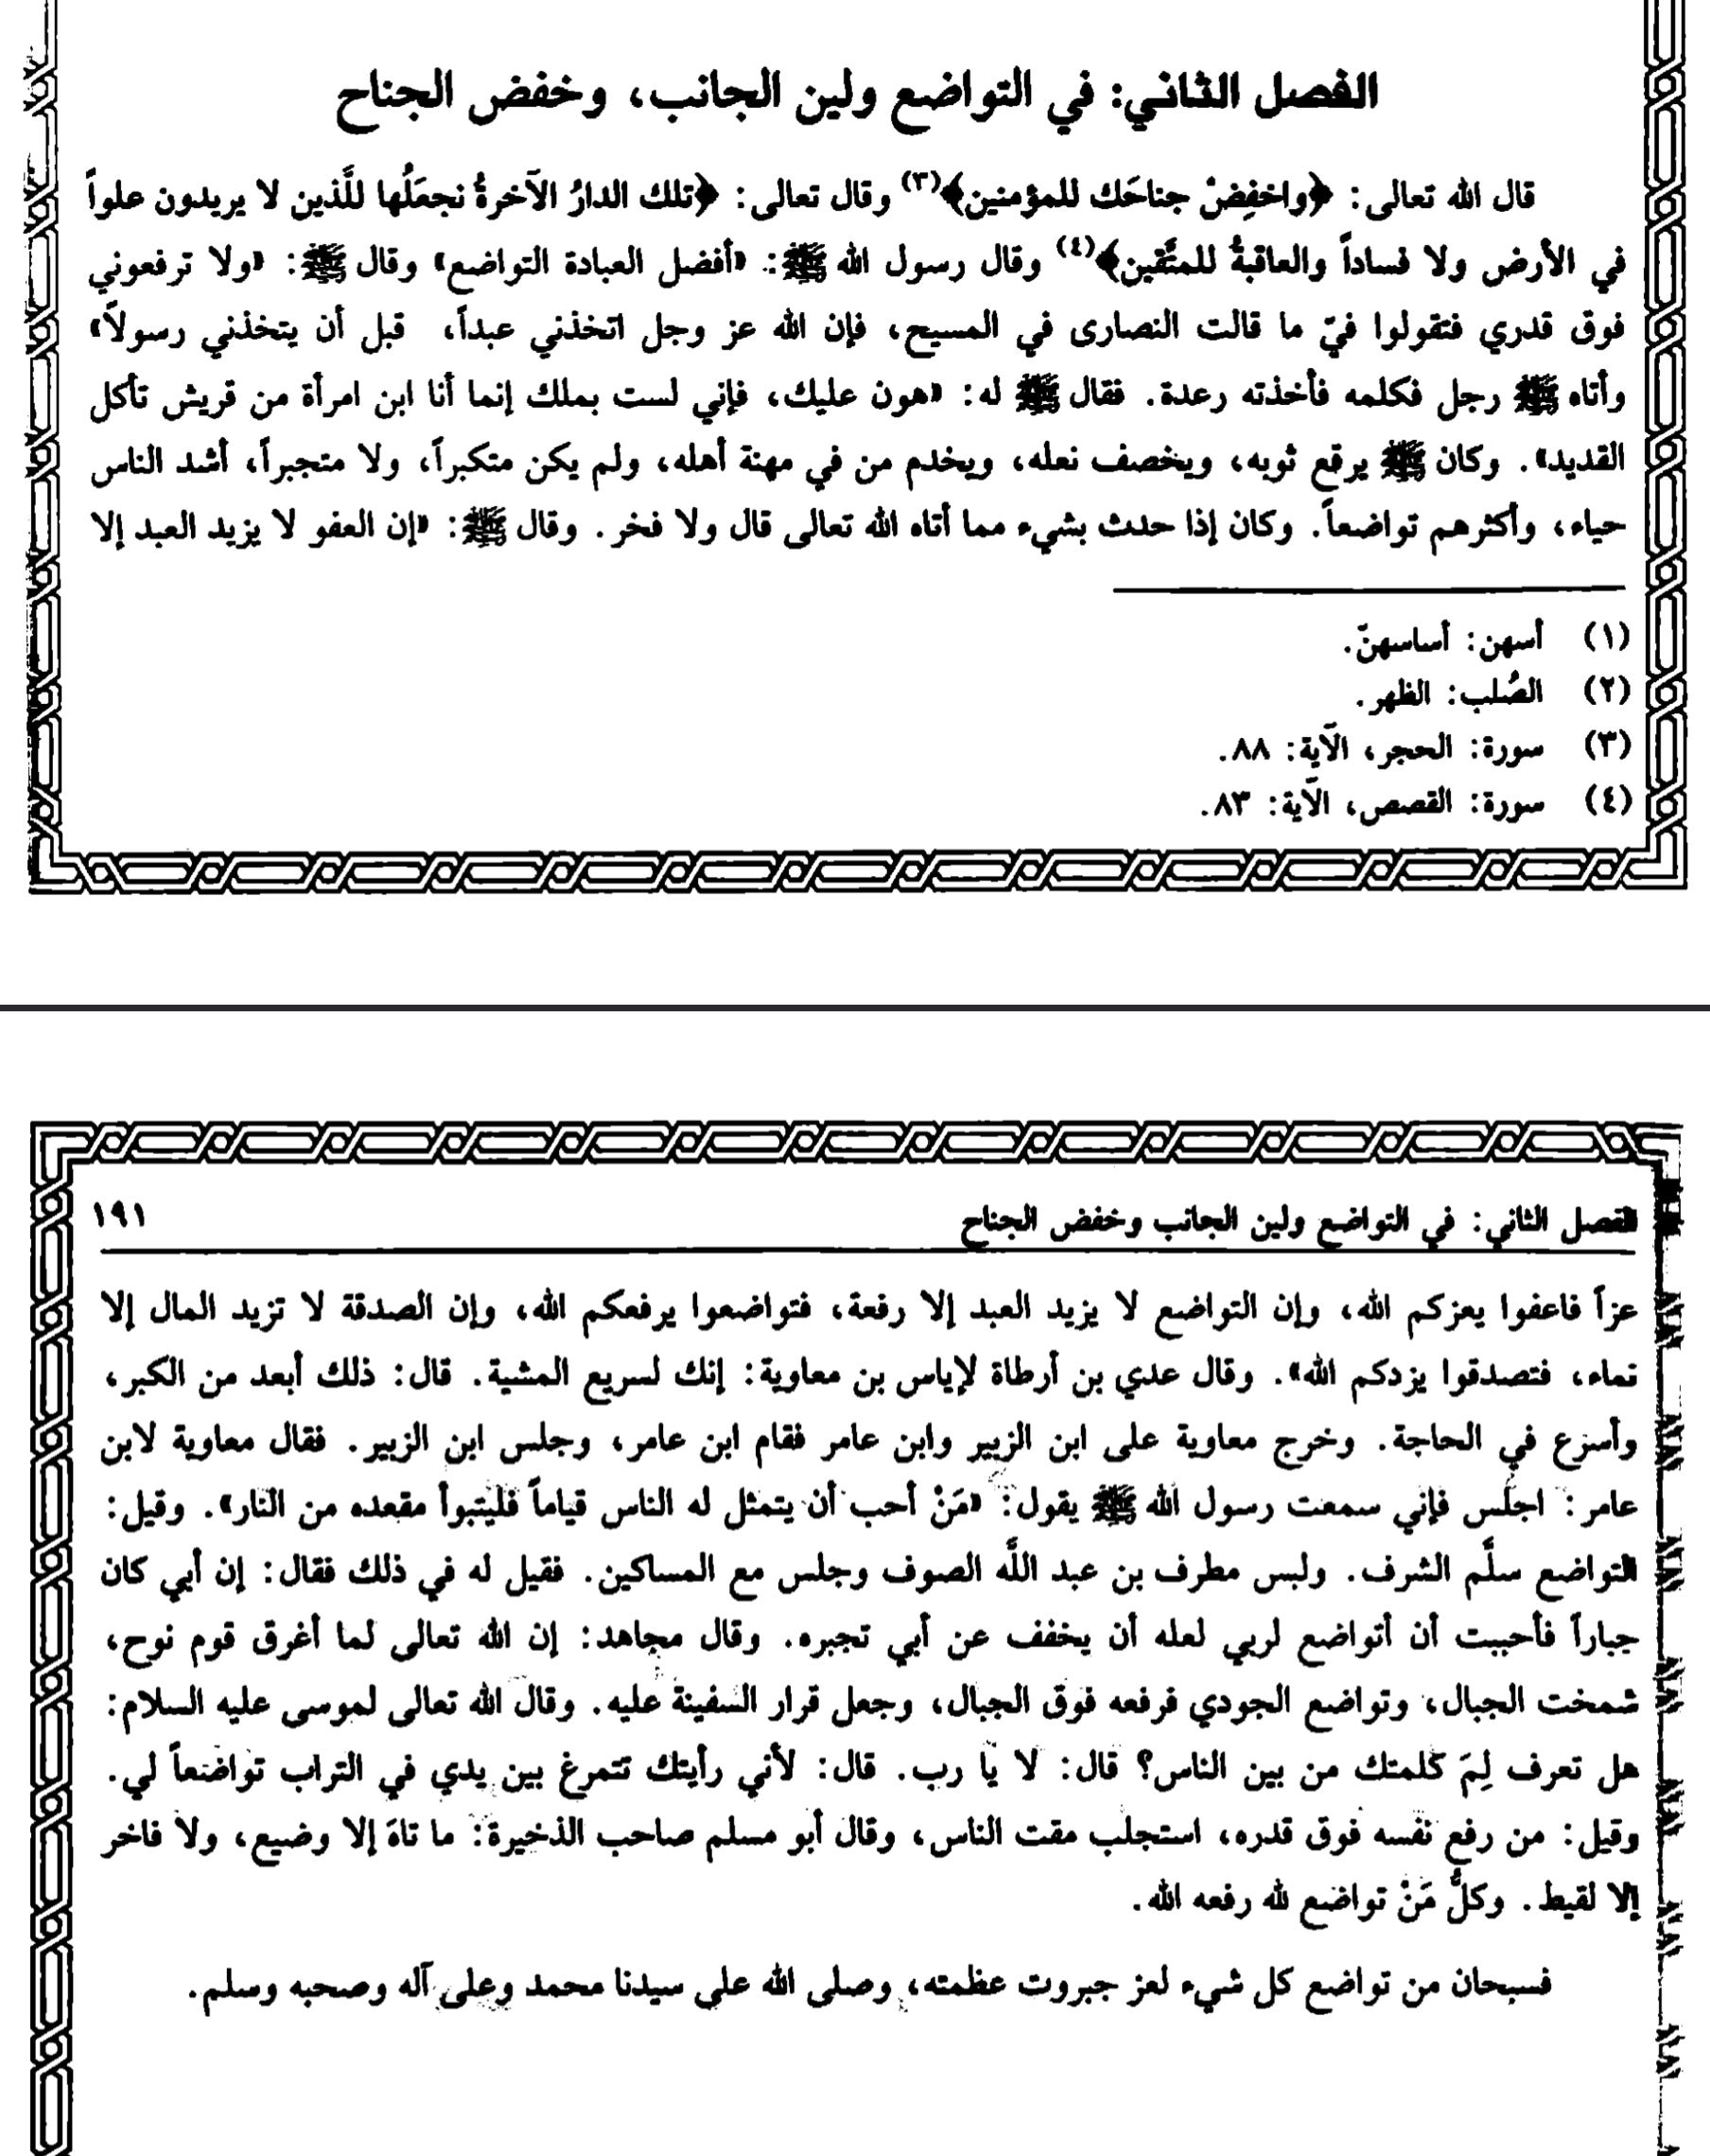 الفصل الثاني: في التواضع ولين الجانب، وخفض الجناح
قال الله تعالى: ﴿واخفِضْ جناحَك للمؤمنين﴾(٣) وقال تعالى: ﴿تلك الدارُ الآخرةُ نجعَلُها للَّذين لا يريدون علواً
في الأرض ولا فساداً والعاقبةُ للمتَّقين﴾(٤) وقال رسول الله ﷺ: «أفضل العبادة التواضع» وقال ﷺ: «ولا ترفعوني
فوق قدري فتقولوا فيّ ما قالت النصارى في المسيح، فإن الله عز وجل اتخذني عبداً، قبل أن يتخذني رسولاً»
وأتاه ﷺ رجل فكلمه فأخذته رعدة. فقال ﷺ له: «هون عليك، فإني لست بملك إنما أنا ابن امرأة من قريش تأكل
القديد». وكان ﷺ يرقع ثوبه، ويخصف نعله، ويخدم من في مهنة أهله، ولم يكن متكبراً، ولا متجبراً، أشد الناس
حياء، وأكثرهم تواضعاً. وكان إذا حدث بشيء مما أتاه الله تعالى قال ولا فخر. وقال ﷺ: «إن العفو لا يزيد العبد إلا
(١) أسهن: أساسهنّ.
(٢) الصُلب: الظهر.
(٣) سورة: الحجر، الآية: ٨٨.
(٤) سورة: القصص، الآية: ٨٣.
الفصل الثاني: في التواضع ولين الجانب وخفض الجناح ١٩١
عزاً فاعفوا يعزكم الله، وإن التواضع لا يزيد العبد إلا رفعة، فتواضعوا يرفعكم الله، وإن الصدقة لا تزيد المال إلا
نماء، فتصدقوا يزدكم الله». وقال عدي بن أرطاة لإياس بن معاوية: إنك لسريع المشية. قال: ذلك أبعد من الكبر،
وأسرع في الحاجة. وخرج معاوية على ابن الزبير وابن عامر فقام ابن عامر، وجلس ابن الزبير. فقال معاوية لابن
عامر: اجلس فإني سمعت رسول الله ﷺ يقول: «مَنْ أحب أن يتمثل له الناس قياماً فليتبوأ مقعده من النار». وقيل:
التواضع سلَّم الشرف. ولبس مطرف بن عبد اللَّه الصوف وجلس مع المساكين. فقيل له في ذلك فقال: إن أبي كان
جباراً فأحببت أن أتواضع لربي لعله أن يخفف عن أبي تجبره. وقال مجاهد: إن الله تعالى لما أغرق قوم نوح،
شمخت الجبال، وتواضع الجودي فرفعه فوق الجبال، وجعل قرار السفينة عليه. وقال الله تعالى لموسى عليه السلام:
هل تعرف لِمَ كلمتك من بين الناس؟ قال: لا يا رب. قال: لأني رأيتك تتمرغ بين يدي في التراب تواضعاً لي.
وقيل: من رفع نفسه فوق قدره، استجلب مقت الناس، وقال أبو مسلم صاحب الذخيرة: ما تاهَ إلا وضيع، ولا فاخر
إلا لقيط. وكلُّ مَنْ تواضع لله رفعه الله.
فسبحان من تواضع كل شيء لعز جبروت عظمته، وصلى الله على سيدنا محمد وعلى آله وصحبه وسلم.